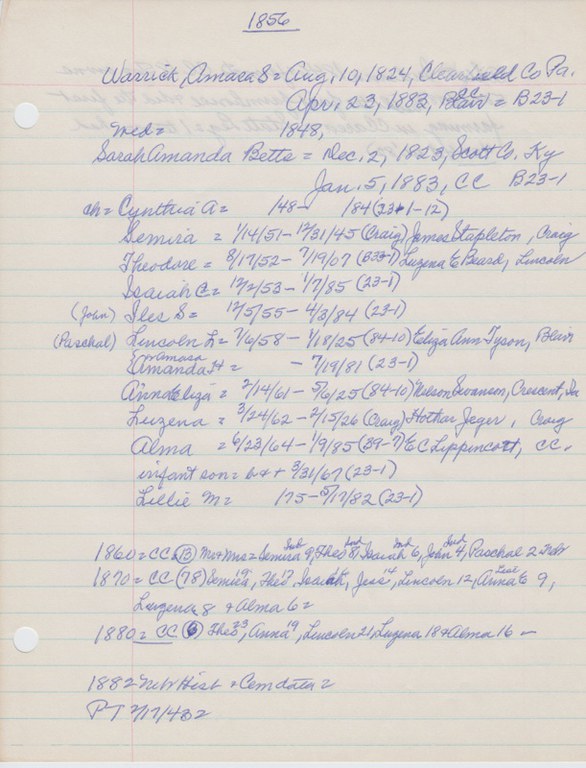 1856
Warrick, Amasa S = Aug. 10, 1824, Clearfield Co Pa.
Apr. 23, 1883, CC Blair = B23-1
md = 1848,
Sarah Amanda Betts = Dec. 2, 1823, Scott Co. Ky
Jan. 5, 1883, CC B23-1
ch = Cynthia A = /48 - /84 (23-1-12)
Semira = 1/14/51 - 12/31/45 (Craig) James Stapleton, Craig
Theodore = 8/17/52 - 7/19/07 (B33-7) Luzena E Beard, Lincoln
Isaiah C = 12/2/53 - 1/7/85 (23-1)
(John) Iles S = 12/5/55 - 4/3/84 (23-1)
(Paschal) Lincoln L = 7/6/58 - 1/18/25 (84-10) Eliza Ann Tyson, Blair
or Amasa
Amanda H = - 7/19/81 (23-1)
Anna Eliza = 2/14/61 - 5/6/25 (84-10) Nelson Swanson, Crescent, Ia
Luzena = 3/24/62 - 2/15/26 (Craig) Hothar Jeger, Craig
Alma = 6/23/64 - 1/9/85 (39-7) E C Lippincott, CC.
infant son = b & + 3/31/67 (23-1)
Lillie M = /75 - 5/17/82 (23-1)
1860 = CC (13) Mr & Mrs = Semira 9, Theo 8, Isaiah 6, John 4, Paschal 2 Nebr
1870 = CC (78) Semira 19, Theo 17, Isaiah, Jess 14, Lincoln 12, Anna E 9,
Luzena 8 & Alma 6 =
1880 = CC (6) Theo 23, Anna 19, Lincoln 21, Luzena 18 & Alma 16 -
1882 Nebr Hist & Cem data =
PT 2/17/432